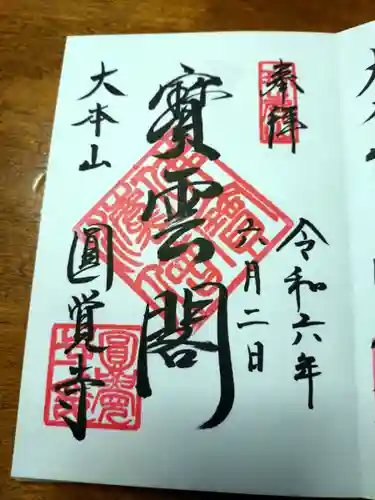 奉拝
令和六年
六月二日
寳雲閣
大本山
圓覚寺